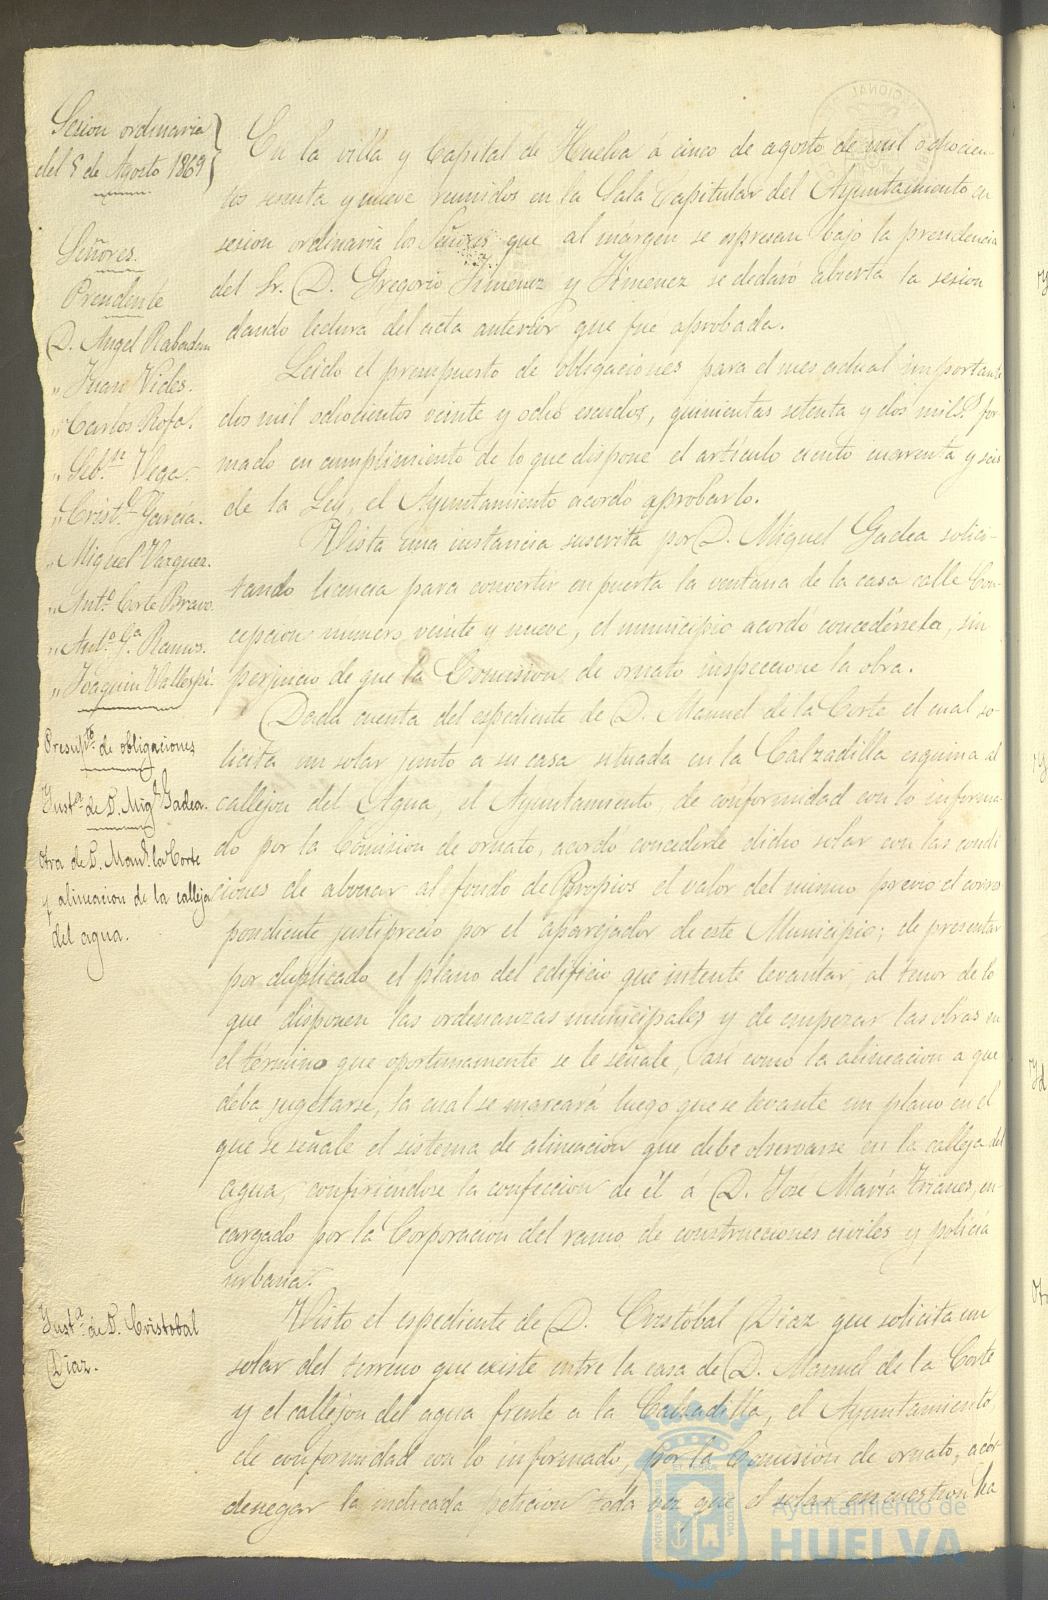 Sesion ordinaria
del 5 de Agosto 1869
Señores.
Presidente
D. Angel Rabadan
" Juan Vides.
" Carlos Rofa.
" Seb.n Vega.
" Crist.l Garcia.
" Miguel Vazquez.
" Ant.o Corte Bravo.
" Ant.o G.a Ramos.
" Joaquin Vallespi.
Presup.to de obligaciones
Inst.a de D. Mig.l Gadea.
Otra de D. Man.l la Corte
y alineacion de la calleja
del agua.
Inst.a de D. Cristobal
Diaz.
En la villa y Capital de Huelva á cinco de agosto de mil ochocien-
tos sesenta y nueve reunidos en la Sala Capitular del Ayuntamiento en
sesion ordinaria los Señores que al márgen se espresan bajo la presidencia
del Sr. D. Gregorio Jimenez y Jimenez se declaró abierta la sesion
dando lectura del acta anterior que fué aprobada.
Leido el presupuesto de obligaciones para el mes actual importante
dos mil ochocientos veinte y ocho escudos, quinientas setenta y dos mil.s for-
mado en cumplimiento de lo que dispone el artículo ciento cuarenta y seis
de la Ley, el Ayuntamiento acordó aprobarlo.
Vista una instancia suscrita por D. Miguel Gadea solici-
tando licencia para convertir en puerta la ventana de la casa calle Con-
cepcion numero veinte y nueve, el municipio acordó concedérsela, sin
perjuicio de que la Comision de ornato inspeccione la obra.
Dada cuenta del espediente de D. Manuel de la Corte el cual so-
licita un solar junto a su casa situada en la Calzadilla esquina al
callejon del Agua, el Ayuntamiento, de conformidad con lo informa-
do por la Comision de ornato, acordó concederle dicho solar con las condi-
ciones de abonar al fondo de Propios el valor del mismo previo el corres
pondiente justiprecio por el aparejador de este Municipio; de presentar
por duplicado el plano del edificio que intente levantar, al tenor de lo
que disponen las ordenanzas municipales y de empezar las obras en
el término que oportunamente se le señale, asi como la alineacion a que
deba sugetarse, la cual se marcará luego que se levante un plano en el
que se señale el sistema de alineacion que debe observarse en la calleja del
agua, confiriendose la confeccion de él á D. Jose María Trianes, en-
cargado por la Corporacion del ramo de construcciones civiles y policía
urbana.
Visto el espediente de D. Cristóbal Diaz que solicita un
solar del terreno que existe entre la casa de D. Manuel de la Corte
y el callejon del agua frente a la Calzadilla, el Ayuntamiento,
de conformidad con lo informado, por la Comision de ornato, acor
denegar la indicada peticion toda vez que el solar en cuestion ha
Ayuntamiento de
HUELVA